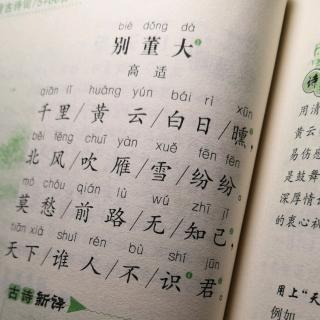 biè dǒng dà
别董大
高适
qiān lǐ huáng yún bái rì xūn
千里/黄云/白日/曛,
běi fēng chuī yàn xuě fēn fēn
北风/吹雁/雪/纷纷。
mò chóu qián lù wú zhī jǐ
莫愁/前路/无/知己,
tiān xià shuí rén bù shí jūn
天下/谁人/不/识/君。
古诗新译
用清
易伤感
是鼓舞
深厚情
的衷心祝
用上“天
例如